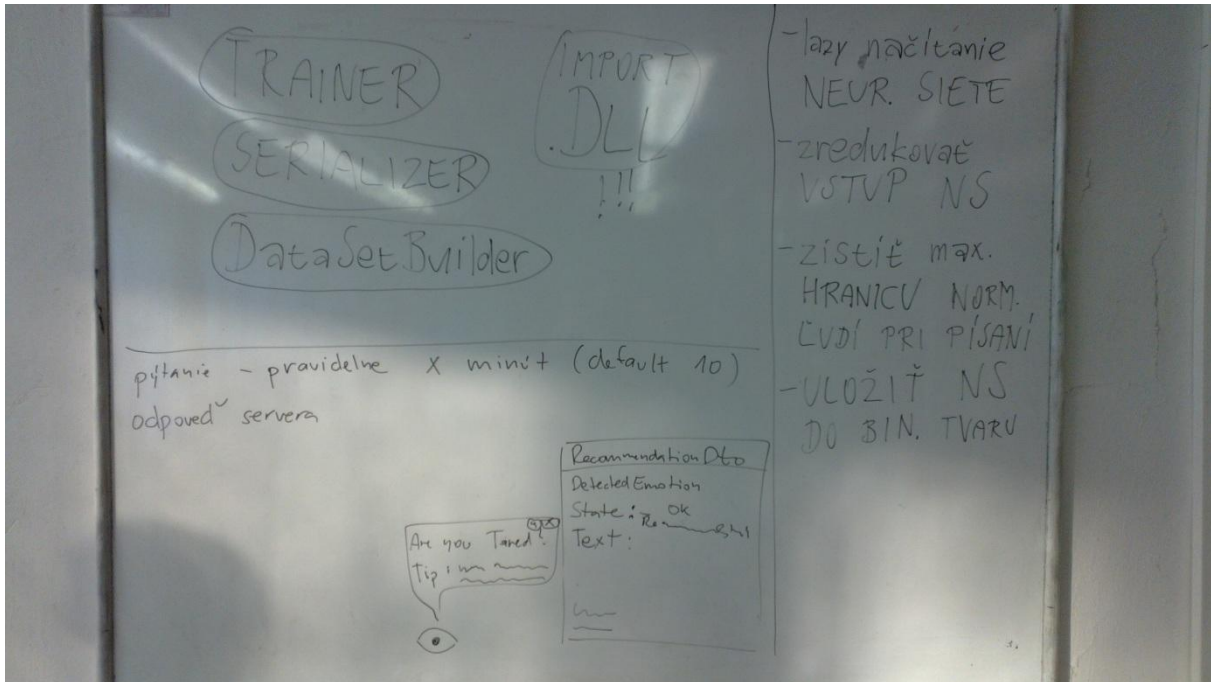 TRAINER
SERIALIZER
DataSet.Builder
IMPORT
.DLL
!!!
-lazy načítánie
NEUR. SIETE
-zredukovať
VSTUP NS
-zistiť max.
HRANICU NORM.
ĽUDÍ PRI PÍSANÍ
-ULOŽIŤ NS
DO BIN. TVARU
pýtanie - pravidelne X minút (default 10)
odpoveď servera
RecommendationDto
DetectedEmotion
State: - OK
Text:
Are you Tared?
Tip: